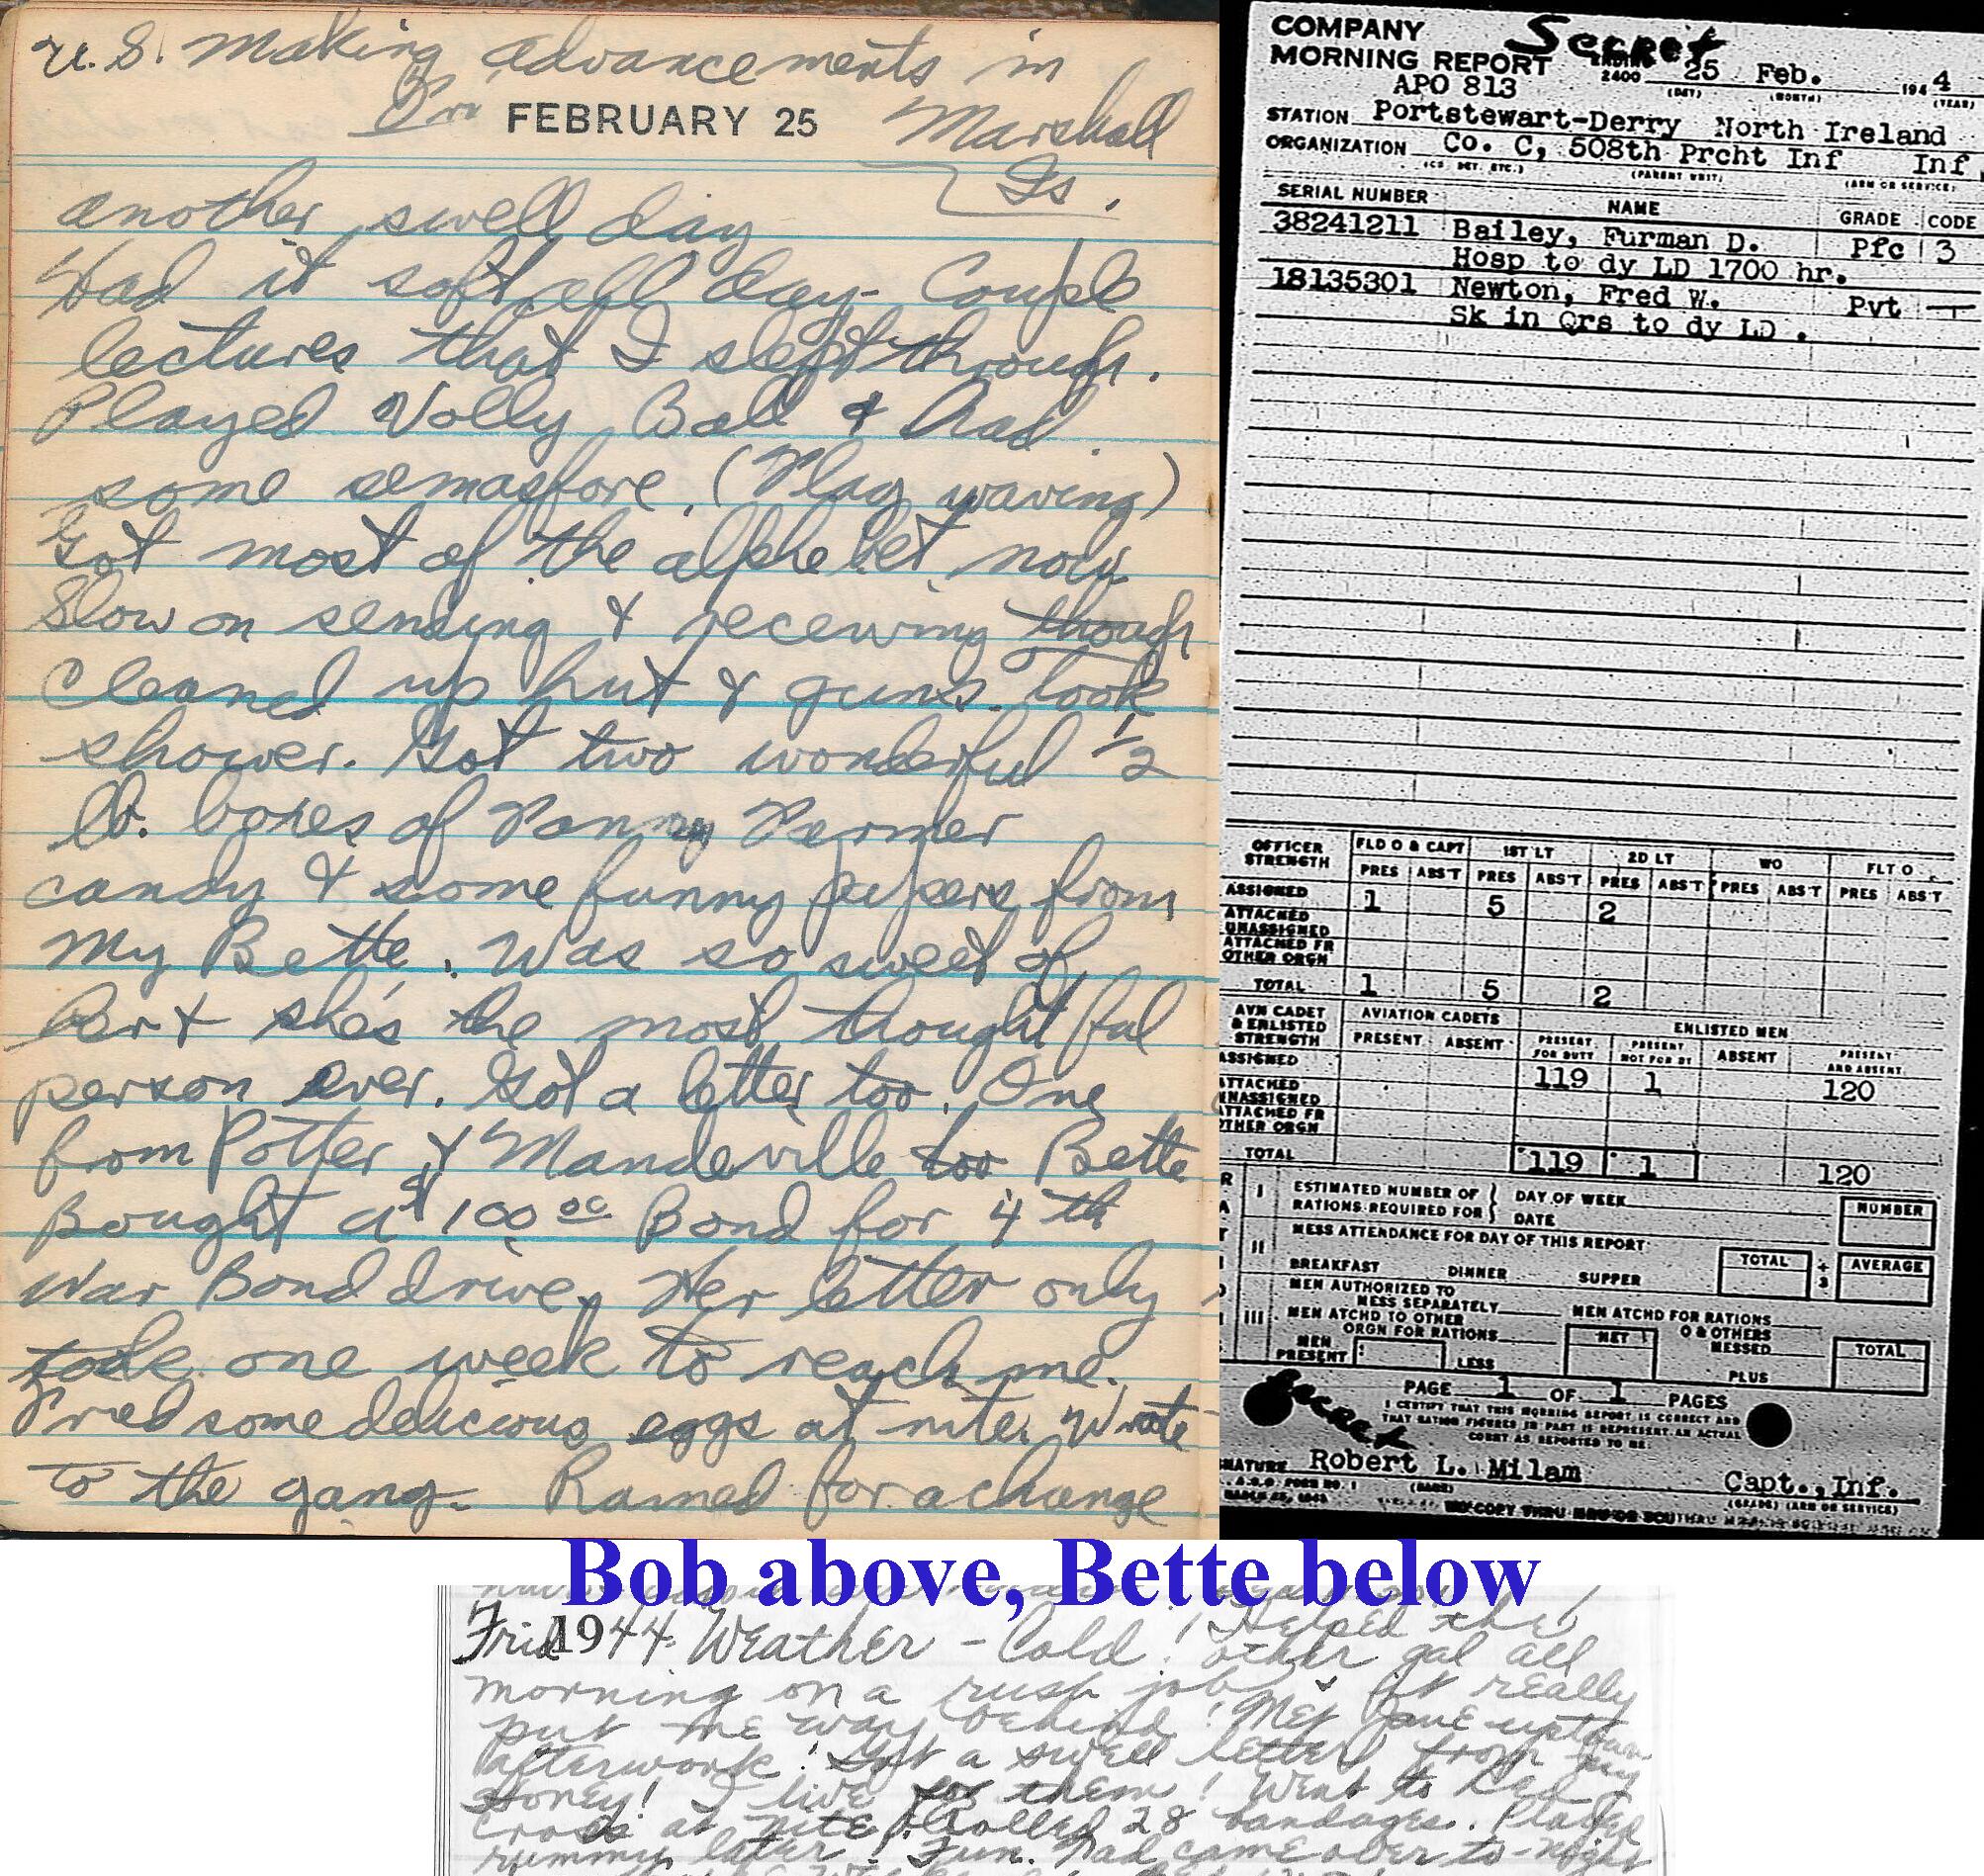 U.S. making advancements in
Marshall
Is.
FEBRUARY 25
another swell day
Had it soft all day - Couple
lectures that I slept through.
Played Volly Ball & had
some semasfore. (Flag waving)
Got most of the alphebet now
Slow on sending & receiving though
Cleaned up hut & guns. Took
shower. Got two wonderful 1/2
lb. boxes of Fanny Farmer
candy & some funny papers from
My Bette. Was so sweet of
her & she's the most thoughtful
person ever. Got a letter too. One
from Potter & Mandeville too Bette
Bought a $100.00 Bond for 4th
War Bond drive. Her letter only
took one week to reach me.
Fried some delicious eggs at nite. Wrote
to the gang. Rained for a change
COMPANY
MORNING REPORT
Secret
2400 25 Feb. 1944
(DAY) (MONTH) (YEAR)
APO 813
STATION Portstewart-Derry North Ireland
ORGANIZATION Co. C, 508th Prcht Inf Inf.
(CO. DET. ETC.) (PARENT UNIT) (ARM OR SERVICE)
SERIAL NUMBER NAME GRADE CODE
38241211 Bailey, Furman D. Pfc 3
Hosp to dy LD 1700 hr.
18135301 Newton, Fred W. Pvt —
Sk in Qrs to dy LD.
OFFICER STRENGTH FLD O & CAPT 1ST LT 2D LT WO FLT O
PRES ABS'T PRES ABS'T PRES ABS'T PRES ABS'T PRES ABS'T
ASSIGNED 1 5 2
ATTACHED UNASSIGNED
ATTACHED FR OTHER ORGN
TOTAL 1 5 2
AVN CADET & ENLISTED STRENGTH AVIATION CADETS ENLISTED MEN
PRESENT ABSENT PRESENT FOR DUTY PRESENT NOT FOR DY ABSENT PRESENT AND ABSENT
ASSIGNED 119 1 120
ATTACHED UNASSIGNED
ATTACHED FR OTHER ORGN
TOTAL 119 1 120
I ESTIMATED NUMBER OF RATIONS REQUIRED FOR DAY OF WEEK DATE NUMBER
II MESS ATTENDANCE FOR DAY OF THIS REPORT
BREAKFAST DINNER SUPPER TOTAL ÷ 3 AVERAGE
III MEN AUTHORIZED TO MESS SEPARATELY MEN ATCHD FOR RATIONS
MEN ATCHD TO OTHER ORGN FOR RATIONS O & OTHERS MESSED
MEN PRESENT LESS NET PLUS TOTAL
PAGE 1 OF 1 PAGES
I CERTIFY THAT THIS MORNING REPORT IS CORRECT AND
THAT RATION FIGURES IN PART III REPRESENT AN ACTUAL
COUNT AS REPORTED TO ME
Secret
SIGNATURE Robert L. Milam Capt., Inf.
(NAME) (GRADE) (ARM OR SERVICE)
Bob above, Bette below
Frid 1944 Weather - Cold! Helped the
other gal all
morning on a rush job. It really
put me way behind! Met Jane uptown
afterwork! Got a swell letter from my
Honey! I live for them! Went to Red
Cross at nite. Rolled 28 bandages. Played
rummy later! Fun. Dad came over to-night